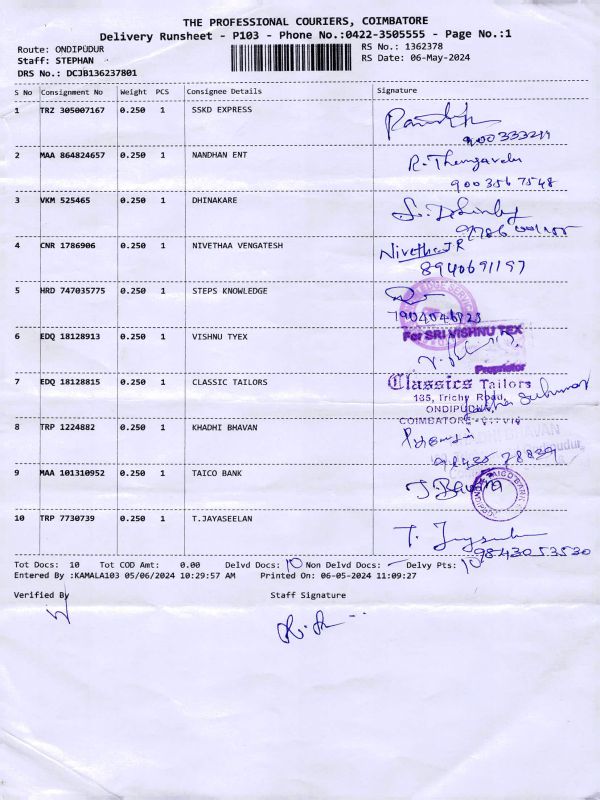 THE PROFESSIONAL COURIERS, COIMBATORE
Delivery Runsheet - P103 - Phone No.:0422-3505555 - Page No.:1
Route: ONDIPUDUR
RS No.: 1362378
Staff: STEPHAN
RS Date: 06-May-2024
DRS No.: DCJB136237801
S No Consignment No Weight PCS Consignee Details Signature
1 TRZ 305007167 0.250 1 SSKD EXPRESS
2 MAA 864824657 0.250 1 NANDHAN ENT
R. Thengavelu
9003567548
3 VKM 525465 0.250 1 DHINAKARE
4 CNR 1786906 0.250 1 NIVETHAA VENGATESH
Nivetha J R
8940691197
5 HRD 747035775 0.250 1 STEPS KNOWLEDGE
6 EDQ 18128913 0.250 1 VISHNU TYEX
For SRI VISHNU TEX
Proprietor
7 EDQ 18128815 0.250 1 CLASSIC TAILORS
Classics Tailors
185, Trichy Road,
ONDIPUDUR,
COIMBATORE
8 TRP 1224882 0.250 1 KHADHI BHAVAN
9 MAA 101310952 0.250 1 TAICO BANK
10 TRP 7730739 0.250 1 T.JAYASEELAN
9843053530
Tot Docs: 10 Tot COD Amt: 0.00 Delvd Docs: 10 Non Delvd Docs: - Delvy Pts: 10
Entered By :KAMALA103 05/06/2024 10:29:57 AM Printed On: 06-05-2024 11:09:27
Verified By Staff Signature